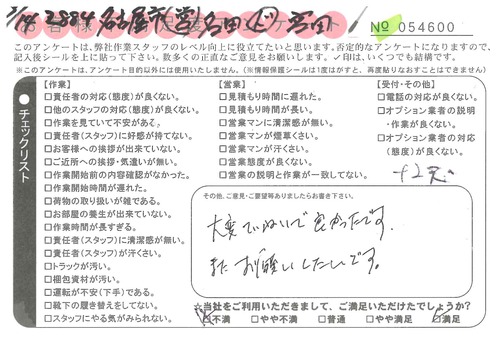 3/14 2884 名古屋市営 吉田
お客様満足度アンケート No 054600
このアンケートは、弊社作業スタッフのレベル向上に役立てたいと思います。否定的なアンケートになりますので、
記入後シールを上に貼って下さい。数多くの正直なご意見をお願いします。✓印は、いくつでも結構です。
※このアンケートは、アンケート目的以外には使用いたしません。(※情報保護シールは1度はがすと、再度貼りなおすことはできません)
チェックリスト
【作業】
□責任者の対応(態度)が良くない。
□他のスタッフの対応(態度)が良くない。
□作業を見ていて不安がある。
□責任者(スタッフ)に好感が持てない。
□お客様への挨拶が出来ていない。
□ご近所への挨拶・気遣いが無い。
□作業開始前の内容確認がなかった。
□作業開始時間が遅れた。
□荷物の取り扱いが雑である。
□お部屋の養生が出来ていない。
□作業時間が長すぎる。
□責任者(スタッフ)に清潔感が無い。
□責任者(スタッフ)が汗くさい。
□トラックが汚い。
□梱包資材が汚い。
□運転が不安(下手)である。
□靴下の履き替えをしてない。
□スタッフにやる気がみられない。
【営業】
□見積もり時間に遅れた。
□見積もり時間が長い。
□営業マンに清潔感が無い。
□営業マンが煙草くさい。
□営業マンが汗くさい。
□営業態度が良くない。
□営業の説明と作業が一致してない。
【受付・その他】
□電話の対応が良くない。
□オプション業者の説明
・作業が良くない。
□オプション業者の対応
(態度)が良くない。
その他、ご意見・ご要望等ありましたらお書き下さい。
大変ていねいで良かったです。
また お願いしたいです。
☆当社をご利用いただきまして、ご満足いただけたでしょうか?
□不満 □やや不満 □普通 □やや満足 ☑満足